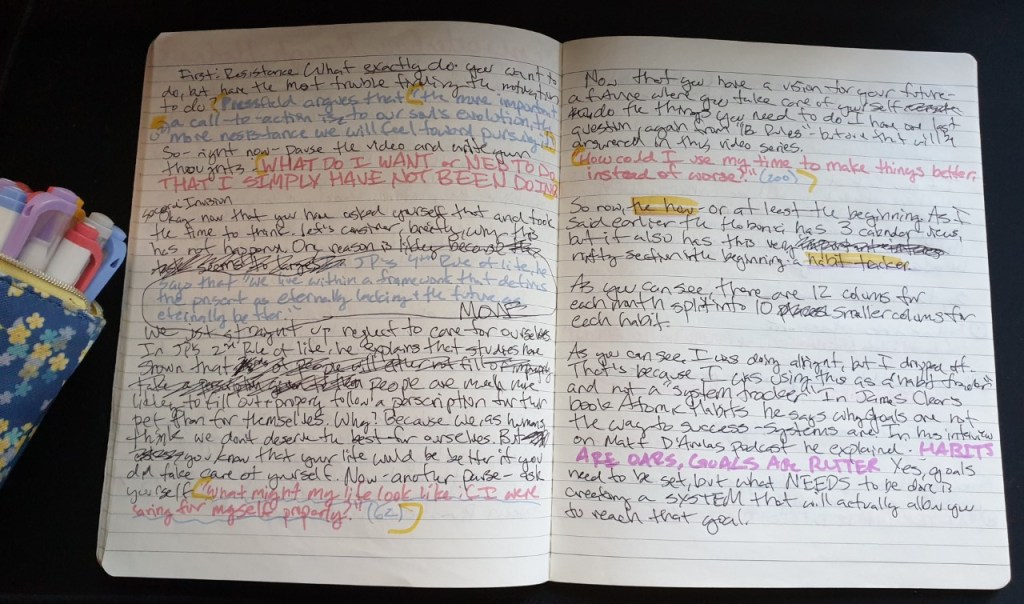 First: Resistance (What exactly do you want to
do, but have the most trouble finding the motivation
to do? Pressfield argues that "the more important
a call-to-action is to our soul's evolution, the
more resistance we will feel toward pursuing it."
So - right now - pause the video and write your
thoughts. WHAT DO I WANT or NEED TO DO
THAT I SIMPLY HAVE NOT BEEN DOING?
Second Invasion
Okay now that you have asked yourself that and took
the time to think. Let's consider, briefly, why this
has not happened. One reason is because
JP's 4th Rule of life, he
says that "we live within a framework that defines
the present as eternally lacking & the future as
eternally better."
MOVE
We just straight up neglect to care for ourselves
In JP's 2nd Rule of life he explains that studies have
shown that of people will either not fill or improperly
take a people are much more
likely to fill out & properly follow a perscription for their
pet than for themselves. Why? Because we, as humans,
think we don't deserve the best for ourselves. But
you know that your life would be better if you
did take care of yourself. Now another pause - ask
yourself "What might my life look like if I were
caring for myself properly?" (62)
Now that you have a vision for your future -
a future where you take care of yourself
& do the things you need to do I have one last
question again from "12 Rules" - but one that will be
answered in this video series.
"How could I use my time to make things better,
instead of worse?" (200)
So now, the how - or at least the beginning. As I
said earlier the Hobonichi has 3 calendar views,
but it also has this very important
nifty section in the beginning - a habit tracker.
As you can see, there are 12 colums for
each month split into 10 smaller colums for
each habit.
As you can see I was doing alright, but I droped off.
That's because I was using this as a "habit tracker"
and not a "system tracker" In James Clears
book Atomic Habits he says why goals are not
the way to success - systems are. In his interview
on Matt D'Avellas Podcast he explained. HABITS
ARE OARS, GOALS ARE RUTTER Yes, goals
need to be set, but what NEEDS to be done is
creating a SYSTEM that will actually allow you
to reach that goal.